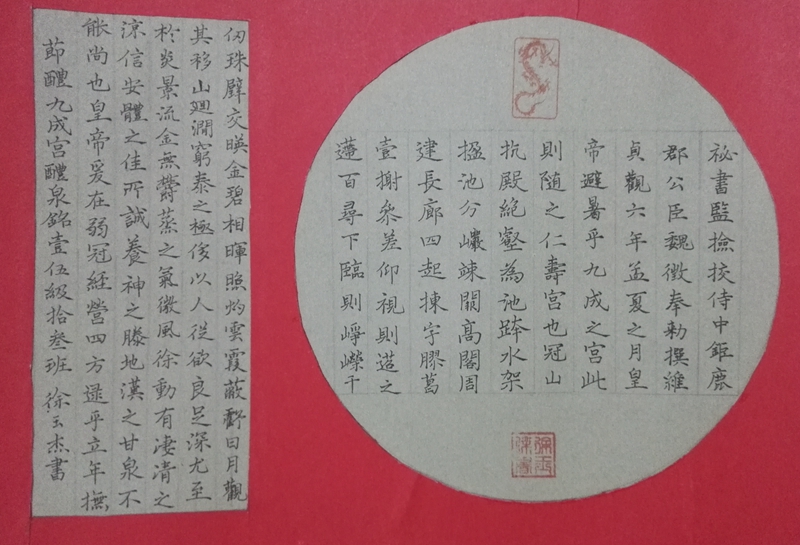 祕書監撿挍侍中鉅鹿
郡公臣魏徵奉勑撰維
貞觀六年孟夏之月皇
帝避暑乎九成之宮此
則隨之仁壽宮也冠山
抗殿絕壑為池跨水架
楹分巗竦闕高閣周
建長廊四起棟宇膠葛
臺榭參差仰視則迢
百尋下臨則崢嶸千
仞珠壁交暎金碧相暉照灼雲霞蔽虧日月觀
其移山廻澗窮泰之極侈以人從欲良足深尤至
於炎景流金無鬱蒸之氣微風徐動有淒清之
涼信安體之佳所誠養神之勝地漢之甘泉不
能尚也皇帝爰在弱冠經營四方逯乎立年撫
節醴九成宮醴泉銘壹伍級拾叁班 徐玉杰書